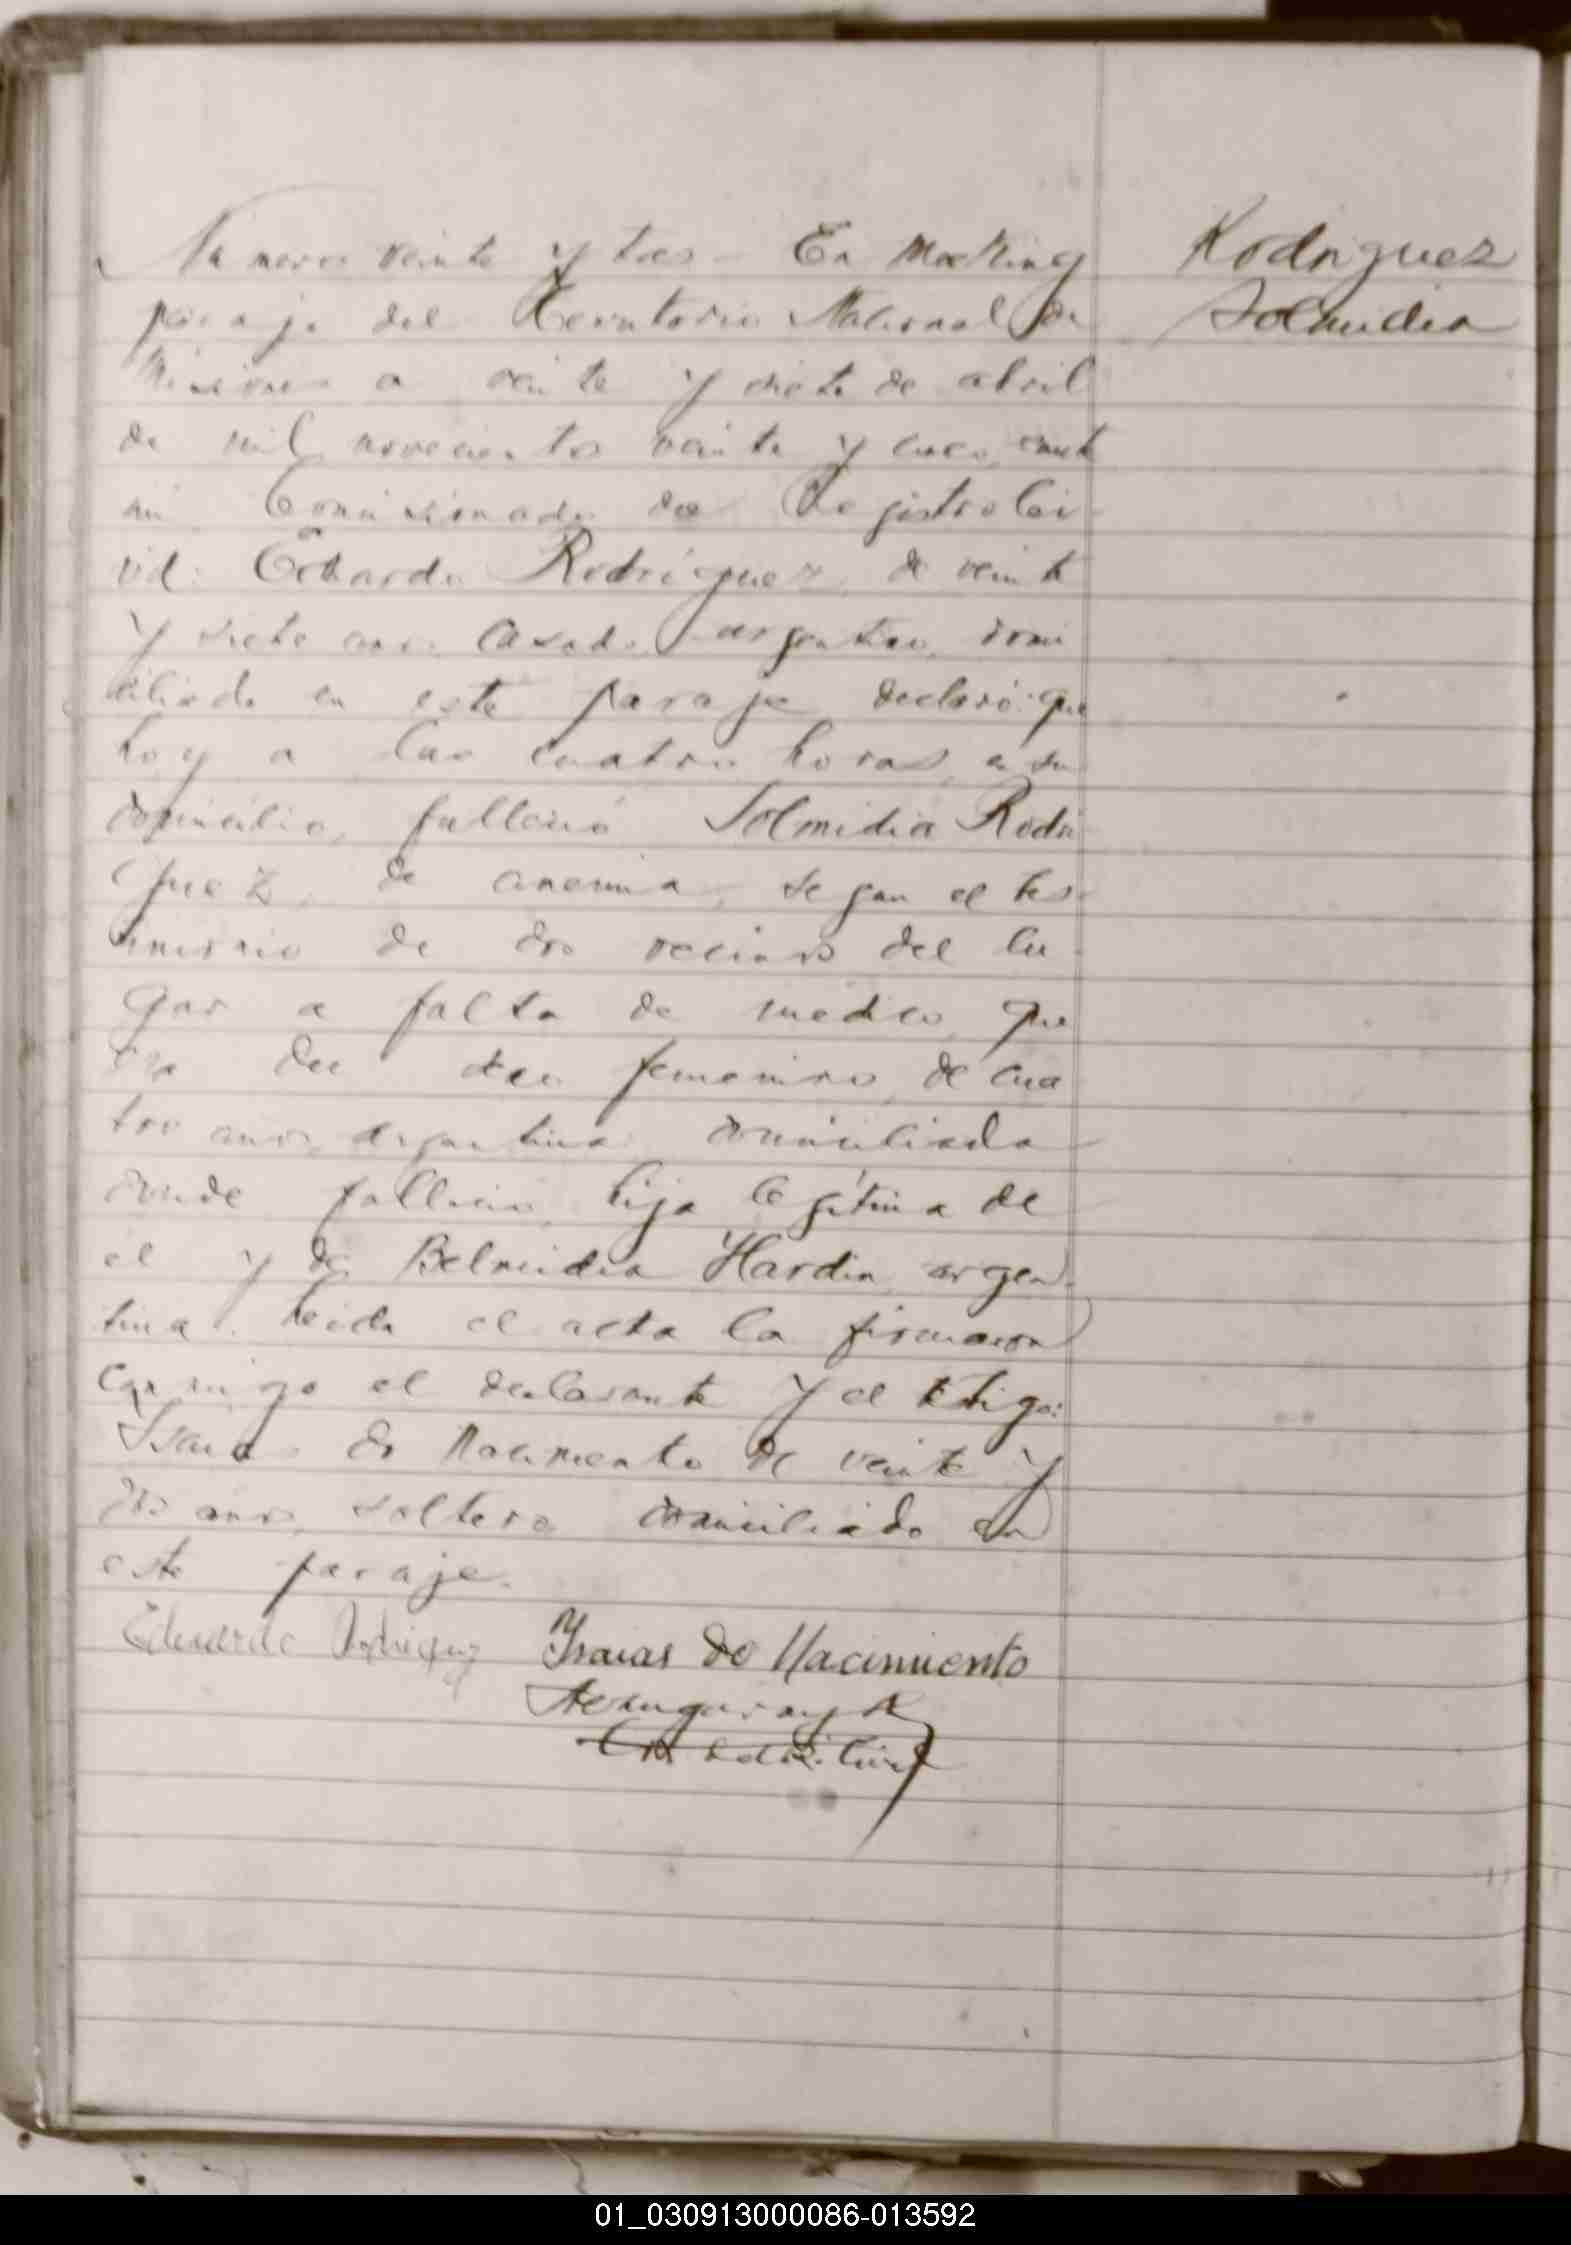 Numero veinte y tres - En Mocking
Rodriguez
paraje del Territorio Nacional de
Solmidia
Misiones a veinte y siete de abril
de mil novecientos veinte y cinco, ante
mi Comisionado de Registro Ci-
vil: Eduardo Rodríguez, de veinte
y siete años, casado, argentino, domi
ciliado en este paraje declaró: que
hoy a las cuatro horas, en su
domicilio, falleció Solmidia Rodri
guez, de anemia, segun el tes-
timonio de dos vecinos del lu-
gar a falta de médico, que
era del sexo femenino, de cua
tro años, argentina, domiciliada
donde falleció, hija legítima de
el y de Belmidia Hardin, argen-
tina. Leida el acta la firmaron
conmigo el declarante y el testigo:
Isaias do Nacimento de veinte y
dos años, soltero domiciliado en
este paraje.
Eduardo Rodriguez Isaias do Nacimiento